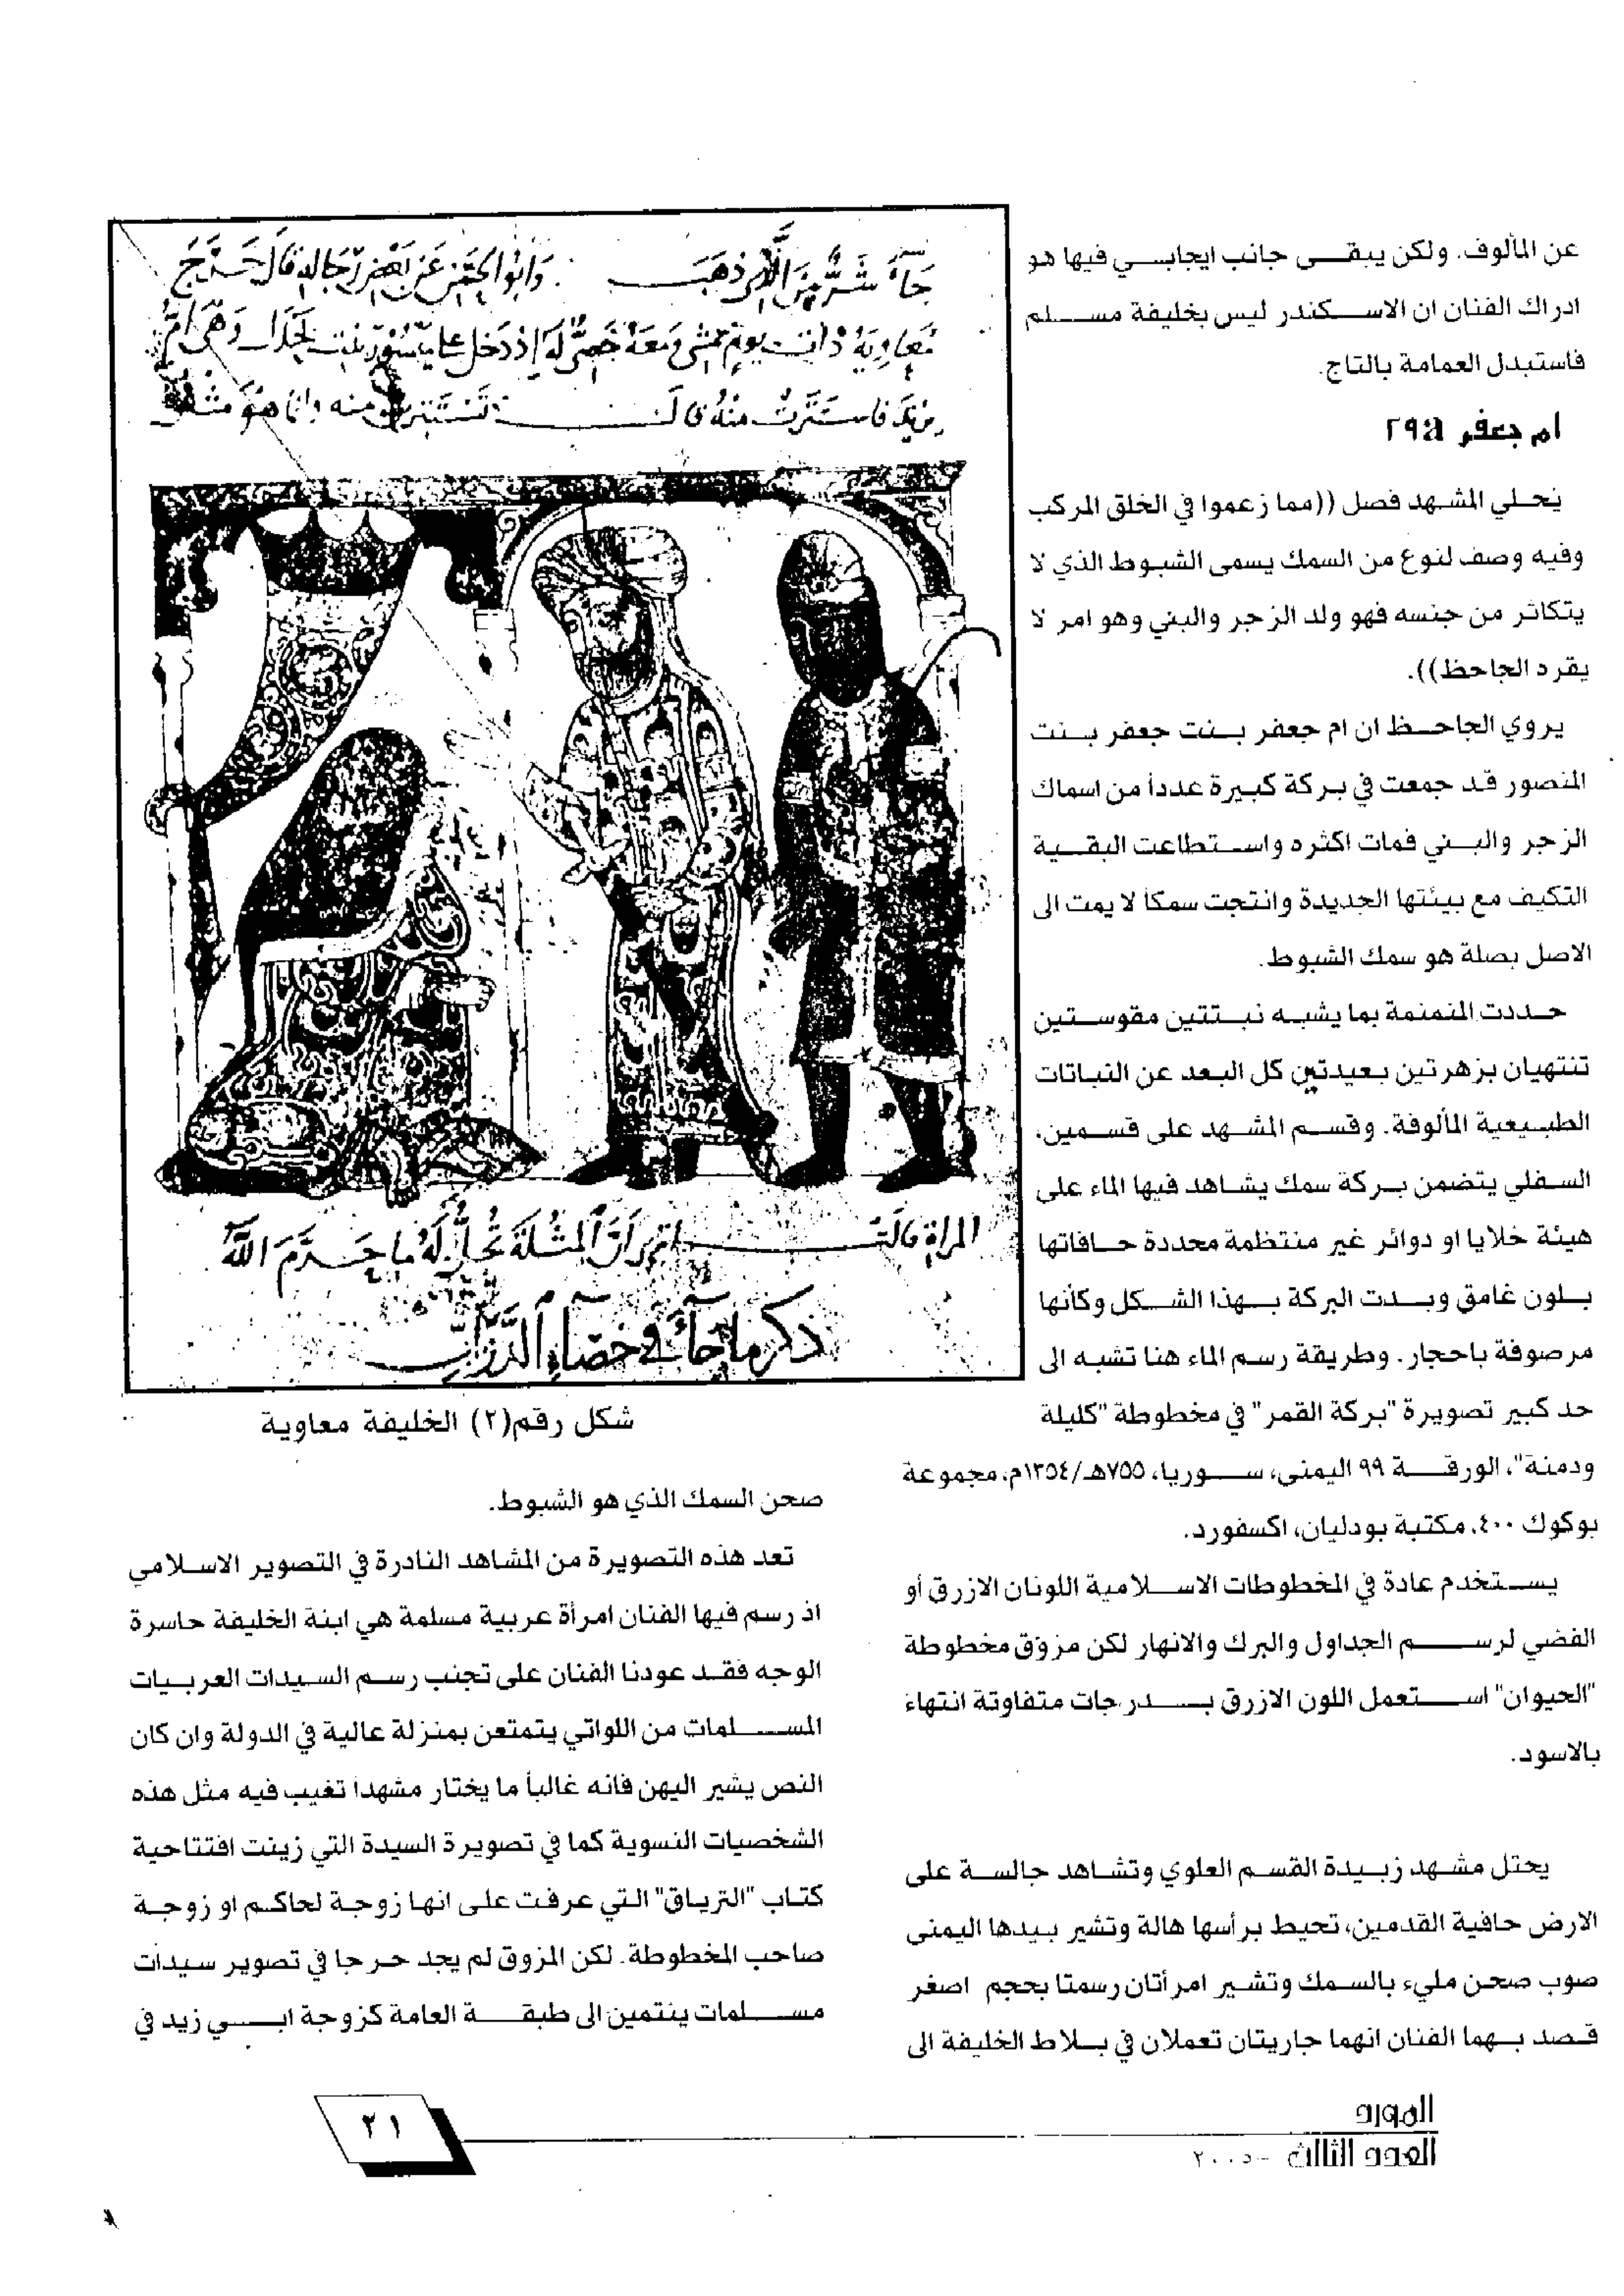 عن المألوف. ولكن يبقى جانب ايجابي فيها هو
ادراك الفنان ان الاسكندر ليس بخليفة مسلم
فاستبدل العمامة بالتاج.
ام جعفر ٢٩a
يُحلي المشهد فصل ((مما زعموا في الخلق المركب
وفيه وصف لنوع من السمك يسمى الشبوط الذي لا
يتكاثر من جنسه فهو ولد الزجر والبني وهو امر لا
يقره الجاحظ)).
يروي الجاحظ ان ام جعفر بنت جعفر بنت
المنصور قد جمعت في بركة كبيرة عدداً من اسماك
الزجر والبني فمات اكثره واستطاعت البقية
التكيف مع بيئتها الجديدة وانتجت سمكاً لا يمت الى
الاصل بصلة هو سمك الشبوط.
حددت المنمنمة بما يشبه نبتتين مقوستين
تنتهيان بزهرتين بعيدتين كل البعد عن النباتات
الطبيعية المألوفة. وقسم المشهد على قسمين،
السفلي يتضمن بركة سمك يشاهد فيها الماء على
هيئة خلايا او دوائر غير منتظمة محددة حافاتها
بلون غامق وبدت البركة بهذا الشكل وكأنها
مرصوفة باحجار. وطريقة رسم الماء هنا تشبه الى
حد كبير تصويرة "بركة القمر" في مخطوطة "كليلة
ودمنة"، الورقة ٩٩ اليمنى، سوريا، ٧٥٥هـ/١٣٥٤م، مجموعة
بوكوك ٤٠٠، مكتبة بودليان، اكسفورد.
يستخدم عادة في المخطوطات الاسلامية اللونان الازرق أو
الفضي لرسم الجداول والبرك والانهار لكن مزوّق مخطوطة
"الحيوان" استعمل اللون الازرق بدرجات متفاوتة انتهاءً
بالاسود.
يحتل مشهد زبيدة القسم العلوي وتشاهد جالسة على
الارض حافية القدمين، تحيط برأسها هالة وتشير بيدها اليمنى
صوب صحن مليء بالسمك وتشير امرأتان رسمتا بحجم اصغر
قصد بهما الفنان انهما جاريتان تعملان في بلاط الخليفة الى
جاء شر من الذي ذهب وابو الحسن عن بعض رجاله قال خرج
معاوية ذات يوم يمشي ومعه خصي له اذ دخل على ميسون بنت بحدل وهي ام
يزيد فاستترت منه قال تستترين منه وانما هو مثل
المرأة قالت اترى ان المثلة تحل له ما حرم الله
ذكر ما جاء في خصاء الدواب
شكل رقم(٢) الخليفة معاوية
صحن السمك الذي هو الشبوط.
تعد هذه التصويرة من المشاهد النادرة في التصوير الاسلامي
اذ رسم فيها الفنان امرأة عربية مسلمة هي ابنة الخليفة حاسرة
الوجه فقد عودنا الفنان على تجنب رسم السيدات العربيات
المسلمات من اللواتي يتمتعن بمنزلة عالية في الدولة وان كان
النص يشير اليهن فانه غالباً ما يختار مشهداً تغيب فيه مثل هذه
الشخصيات النسوية كما في تصويرة السيدة التي زينت افتتاحية
كتاب "الترياق" التي عرفت على انها زوجة لحاكم او زوجة
صاحب المخطوطة. لكن المزوق لم يجد حرجا في تصوير سيدات
مسلمات ينتمين الى طبقة العامة كزوجة ابي زيد في
المورد
العدد الثالث - ٢٠٠٥
٢١